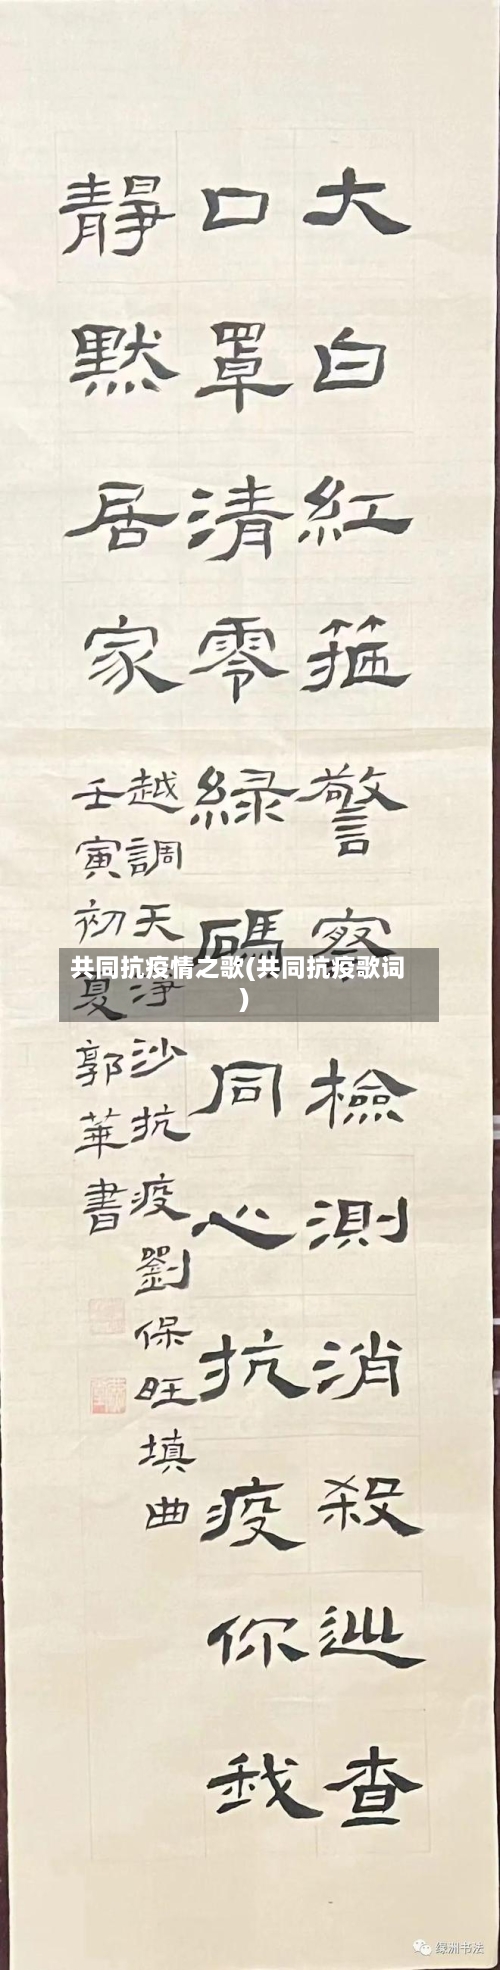 大白紅箍警察檢測消殺巡查
口罩清零緑碼同心抗疫你我
靜默居家
越調天淨沙抗疫劉保旺填曲
壬寅初夏郭華書
共同抗疫情之歌(共同抗疫歌词
)
绿洲书法